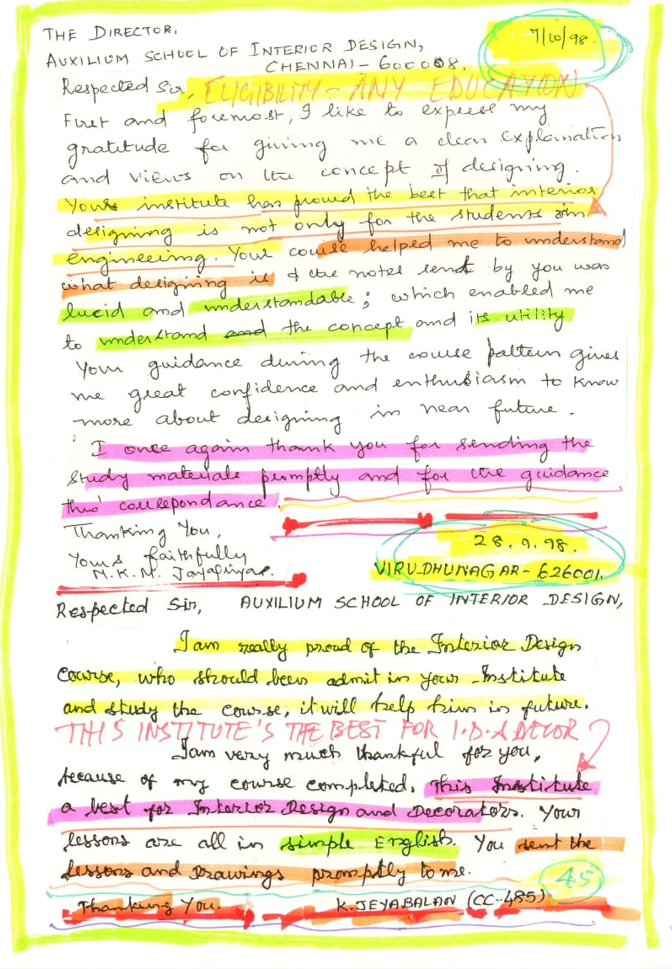 THE DIRECTOR,
7/10/98.
AUXILIUM SCHOOL OF INTERIOR DESIGN,
CHENNAI - 600008.
Respected Sir, ELIGIBILITY - ANY EDUCATION
First and foremost, I like to express my
gratitude for giving me a clean explanation
and views on the concept of designing.
Your institute has proud the best that interior
designing is not only for the students in
engineering. Your course helped me to understand
what designing is & the notes send by you was
lucid and understandable; which enabled me
to understand and the concept and its utility
Your guidance during the course pattern gives
me great confidence and enthusiasm to know
more about designing in near future.
I once again thank you for sending the
study materials promptly and for the guidance
thro' correspondance.
Thanking You,
Yours faithfully
N.K.M. Jayapriya.
28.9.98.
VIRUDHUNAGAR - 626001.
Respected Sir, AUXILIUM SCHOOL OF INTERIOR DESIGN,
I am really proud of the Interior Design
course, who should been admit in your Institute
and study the course, it will help him in future.
THIS INSTITUTE'S THE BEST FOR I.D. & DECOR
I am very much thankful for you,
because of my course completed. This Institute
a best for Interior Design and Decorators. Your
lessons are all in simple English. You sent the
lessons and Drawings promptly to me.
45
Thanking You. K. JEYABALAN (CC-485)